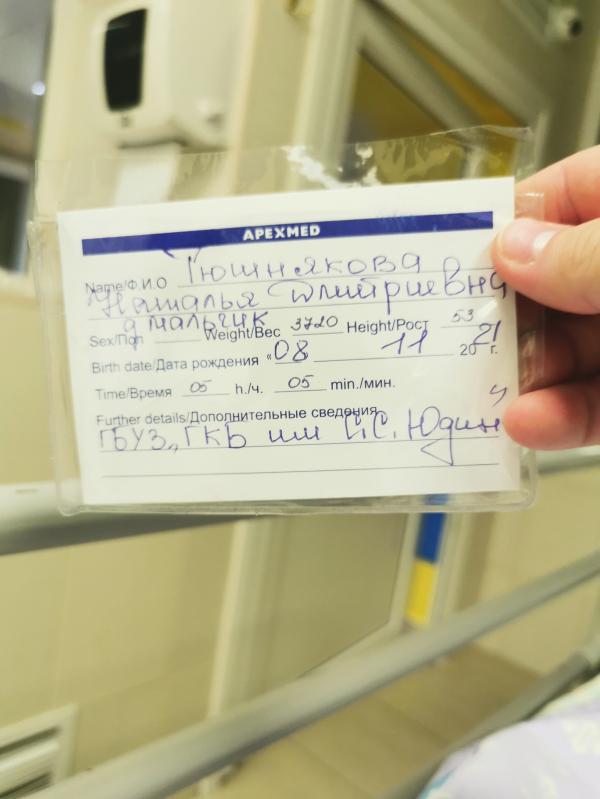 APEXMED
Name/Ф.И.О Тюшнякова
Наталья Дмитриевна
Sex/Пол мальчик Weight/Вес 3720 Height/Рост 53
Birth date/Дата рождения «08 11 2021 г.
Time/Время 05 h./ч. 05 min./мин.
Further details/Дополнительные сведения
ГБУЗ „ГКБ им С.С. Юдин